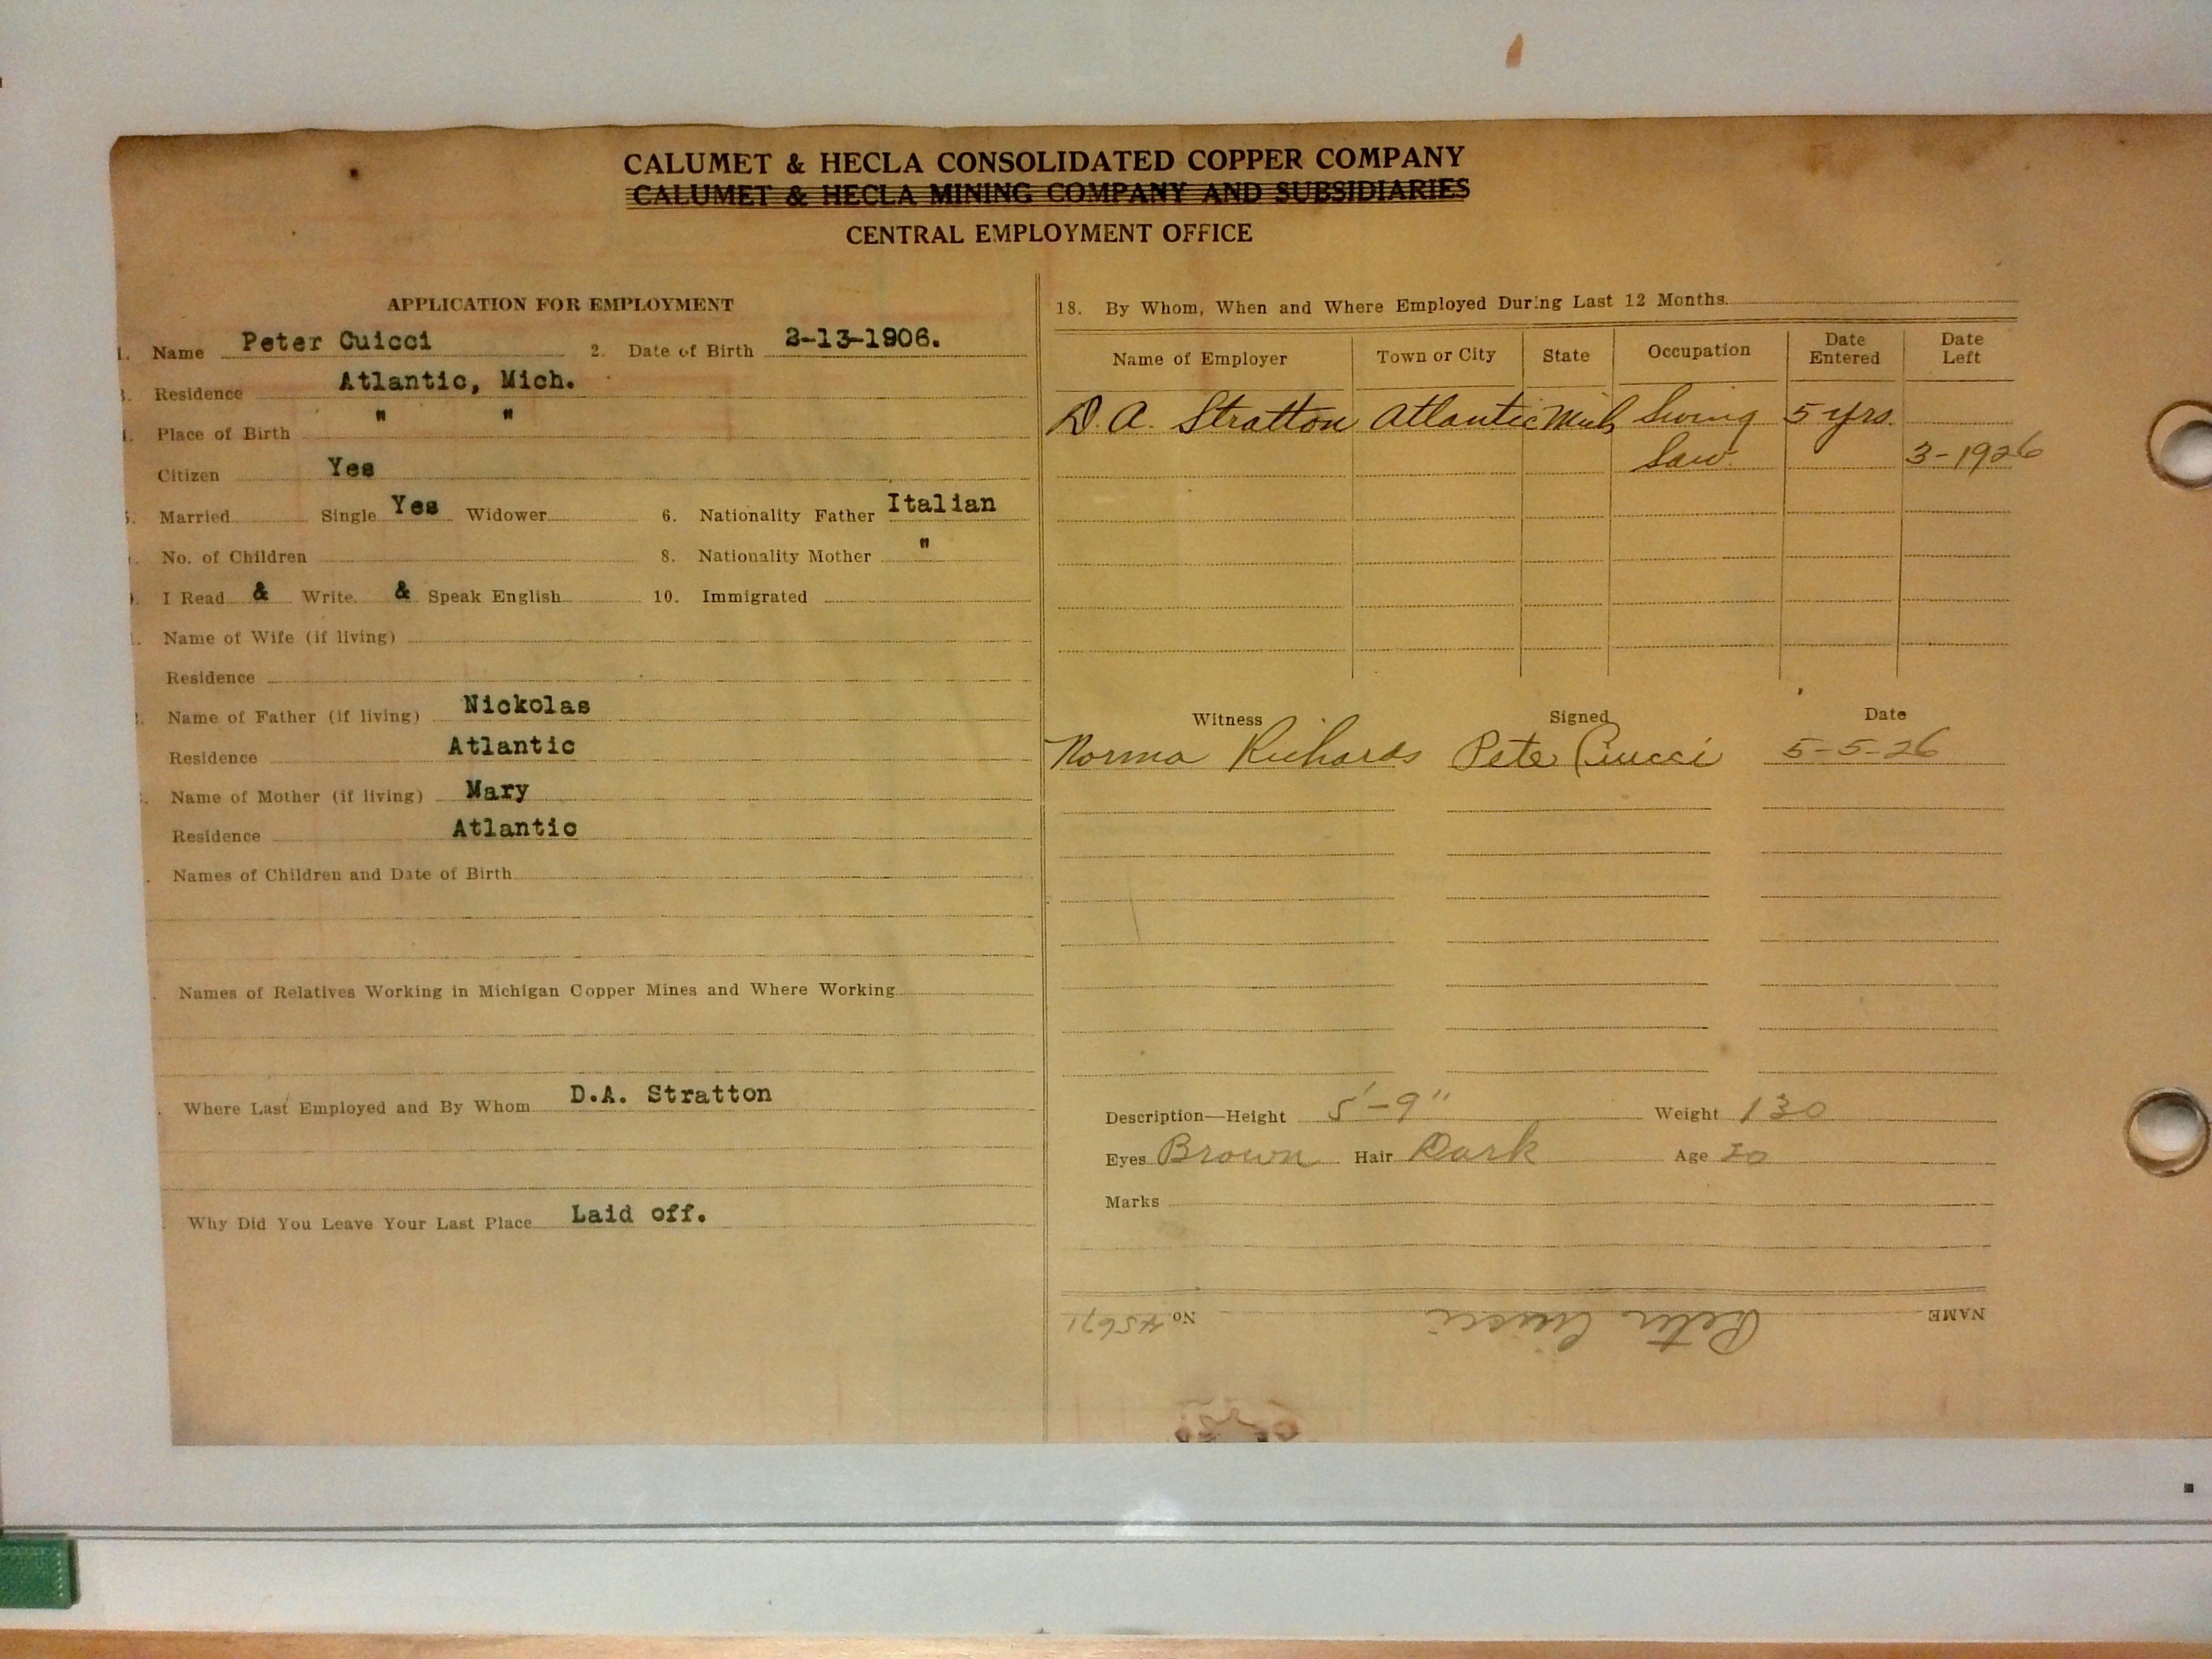 CALUMET & HECLA CONSOLIDATED COPPER COMPANY
CALUMET & HECLA MINING COMPANY AND SUBSIDIARIES
CENTRAL EMPLOYMENT OFFICE
APPLICATION FOR EMPLOYMENT
1. Name Peter Cuicci 2. Date of Birth 2-13-1906.
Residence Atlantic, Mich.
Place of Birth " "
Citizen Yes
Married Single Yes Widower 6. Nationality Father Italian
No. of Children 8. Nationality Mother "
I Read & Write & Speak English 10. Immigrated
Name of Wife (if living)
Residence
Name of Father (if living) Nickolas
Residence Atlantic
Name of Mother (if living) Mary
Residence Atlantic
Names of Children and Date of Birth
Names of Relatives Working in Michigan Copper Mines and Where Working
Where Last Employed and By Whom D.A. Stratton
Why Did You Leave Your Last Place Laid off.
18. By Whom, When and Where Employed During Last 12 Months
Name of Employer Town or City State Occupation Date Entered Date Left
D. A. Stratton Atlantic Mich Swing 5 yrs.
Saw 3-1926
Witness Signed Date
Norma Richards Pete Ciucci 5-5-26
Description—Height 5'-9" Weight 130
Eyes Brown Hair Dark Age 20
Marks
NAME Peter Ciucci No. 45671